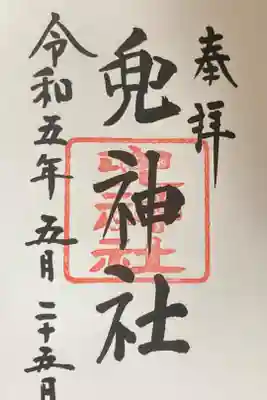 奉拝
兜神社
令和五年 五月 二十五日